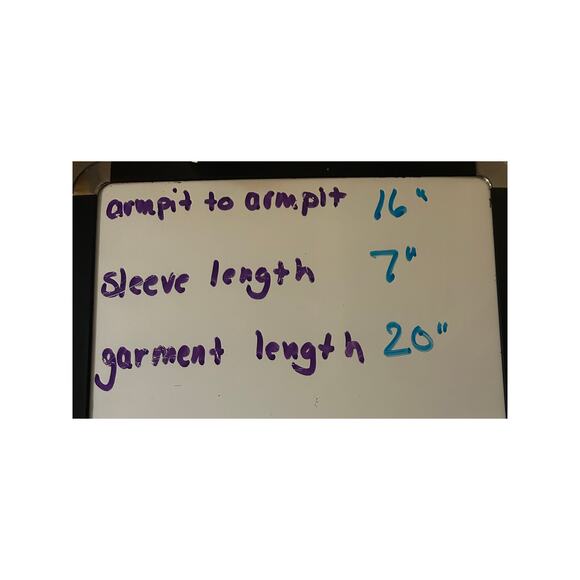 armpit to armpit 16"
sleeve length 7"
garment length 20"